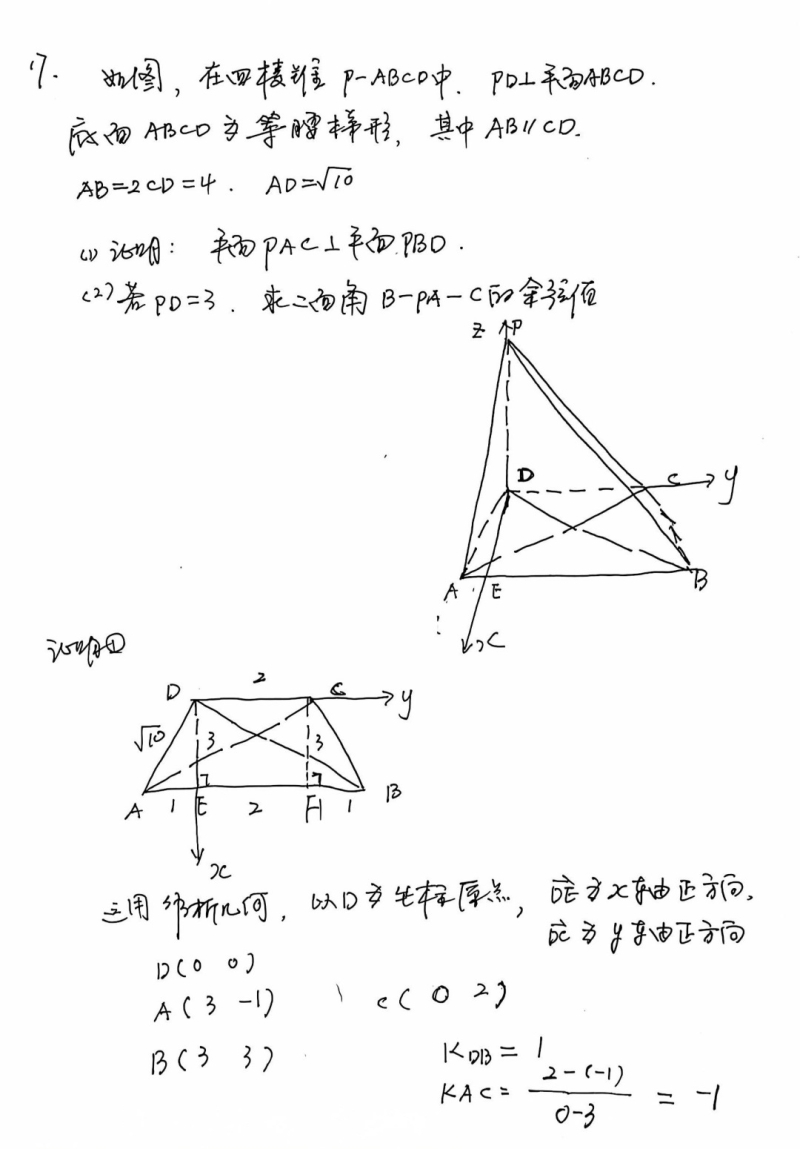 17. 如图，在四棱锥 P-ABCD中. PD⊥平面ABCD.
底面 ABCD 为等腰梯形, 其中 AB∥CD.
AB=2CD=4. AD=√10
(1) 证明: 平面PAC⊥平面PBD.
(2) 若PD=3. 求二面角 B-PA-C的余弦值
Z P
D C y
A E B
x
证明①
D 2 C y
√10 3 3
A 1 E 2 F 1 B
x
运用解析几何, 以D为坐标原点, DE为x轴正方向,
DC为y轴正方向
D(0 0)
A(3 -1) C(0 2)
B(3 3)
KDB = 1
KAC = 2-(-1)/0-3 = -1